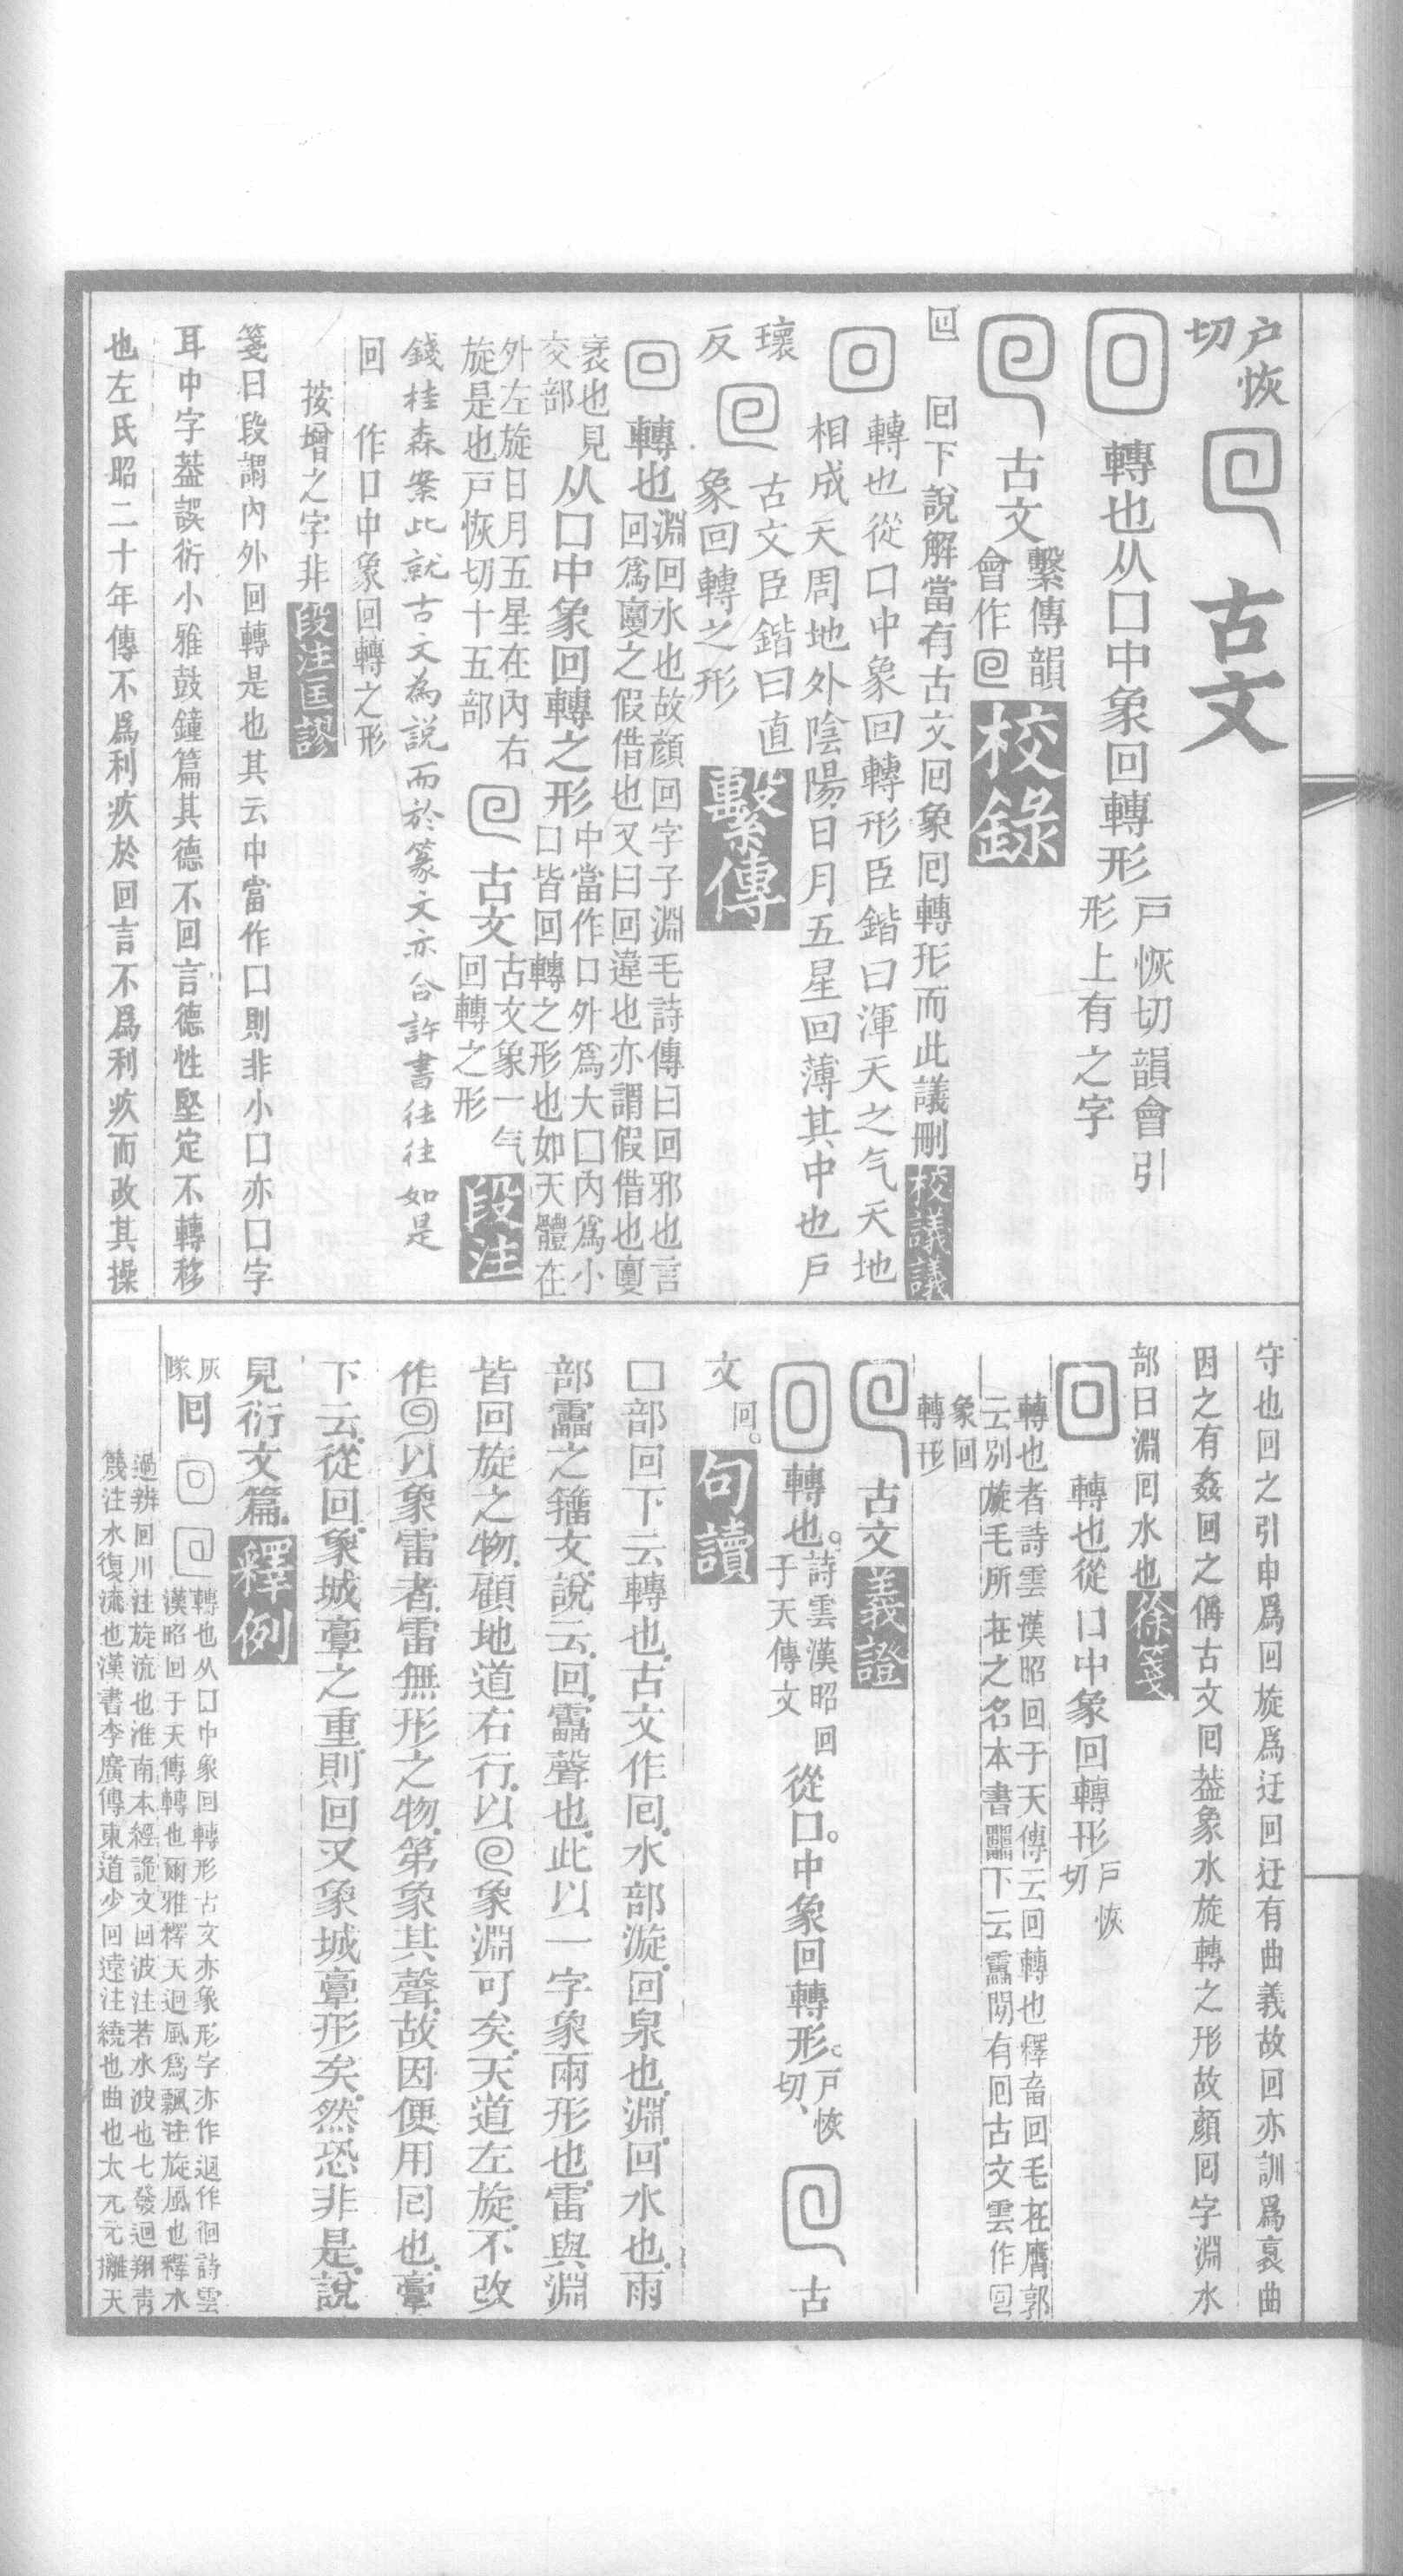 户恢切 古文
轉也从囗中象回轉形 戸恢切韻會引形上有之字
古文 繫傳韻會作 校錄
回 囘下說解當有古文囘象囘轉形而此議刪 校議議
轉也從囗中象回轉形臣鍇曰渾天之气天地
相成天周地外陰陽日月五星回薄其中也戶
瓌反 古文臣鍇曰直
象回轉之形 繫傳
轉也 淵回水也故顏回字子淵毛詩傳曰回邪也言
回爲𡕢之假借也又曰回違也亦謂假借也𡕢
衺也見交部 从囗中象回轉之形 中當作口外爲大囗內爲小
口皆回轉之形也如天體在
外左旋日月五星在內右
旋是也戸恢切十五部 古文 古文象一气回轉之形 段注
錢桂森案此就古文為說而於篆文亦合許書往往如是
回 作囗中象回轉之形
按增之字非 段注匡謬
箋曰段謂內外回轉是也其云中當作口則非小口亦囗字
耳中字葢誤衍小雅鼓鐘篇其德不回言德性堅定不轉移
也左氏昭二十年傳不爲利疚於回言不爲利疚而改其操
守也回之引申爲回旋爲迂回迂有曲義故回亦訓爲衺曲
因之有姦回之偁古文囘葢象水旋轉之形故顏回字淵水
部曰淵囘水也 徐箋
轉也從囗中象回轉形 戸恢切
轉也者詩雲漢昭回于天傳云回轉也釋畜回毛在膺郭
云別旋毛所在之名本書靁下云靁閒有囘古文雲作
象回轉形
古文 義證
轉也。詩雲漢昭回于天傳文 從囗。中象回轉形。戸恢切、 古
文 回。 句讀
囗部回下云轉也古文作囘水部漩回泉也淵回水也雨
部靁之籀文說云回靁聲也此以一字象兩形也雷與淵
皆回旋之物顧地道右行以 象淵可矣天道左旋不改
作 以象雷者雷無形之物第象其聲故因便用囘也𩫖
下云從回象城𩫖之重則回又象城𩫖形矣然恐非是說
見衍文篇 釋例
灰隊 囘 轉也从囗中象回轉形古文亦象形字亦作迴作徊詩雲
漢昭回于天傳轉也爾雅釋天迴風爲飄注旋風也釋水
過辨回川注旋流也淮南本經詭文回波注若水波也七發迴翔靑
篾注水復流也漢書李廣傳東道少回遠注繞也曲也太元元攡天